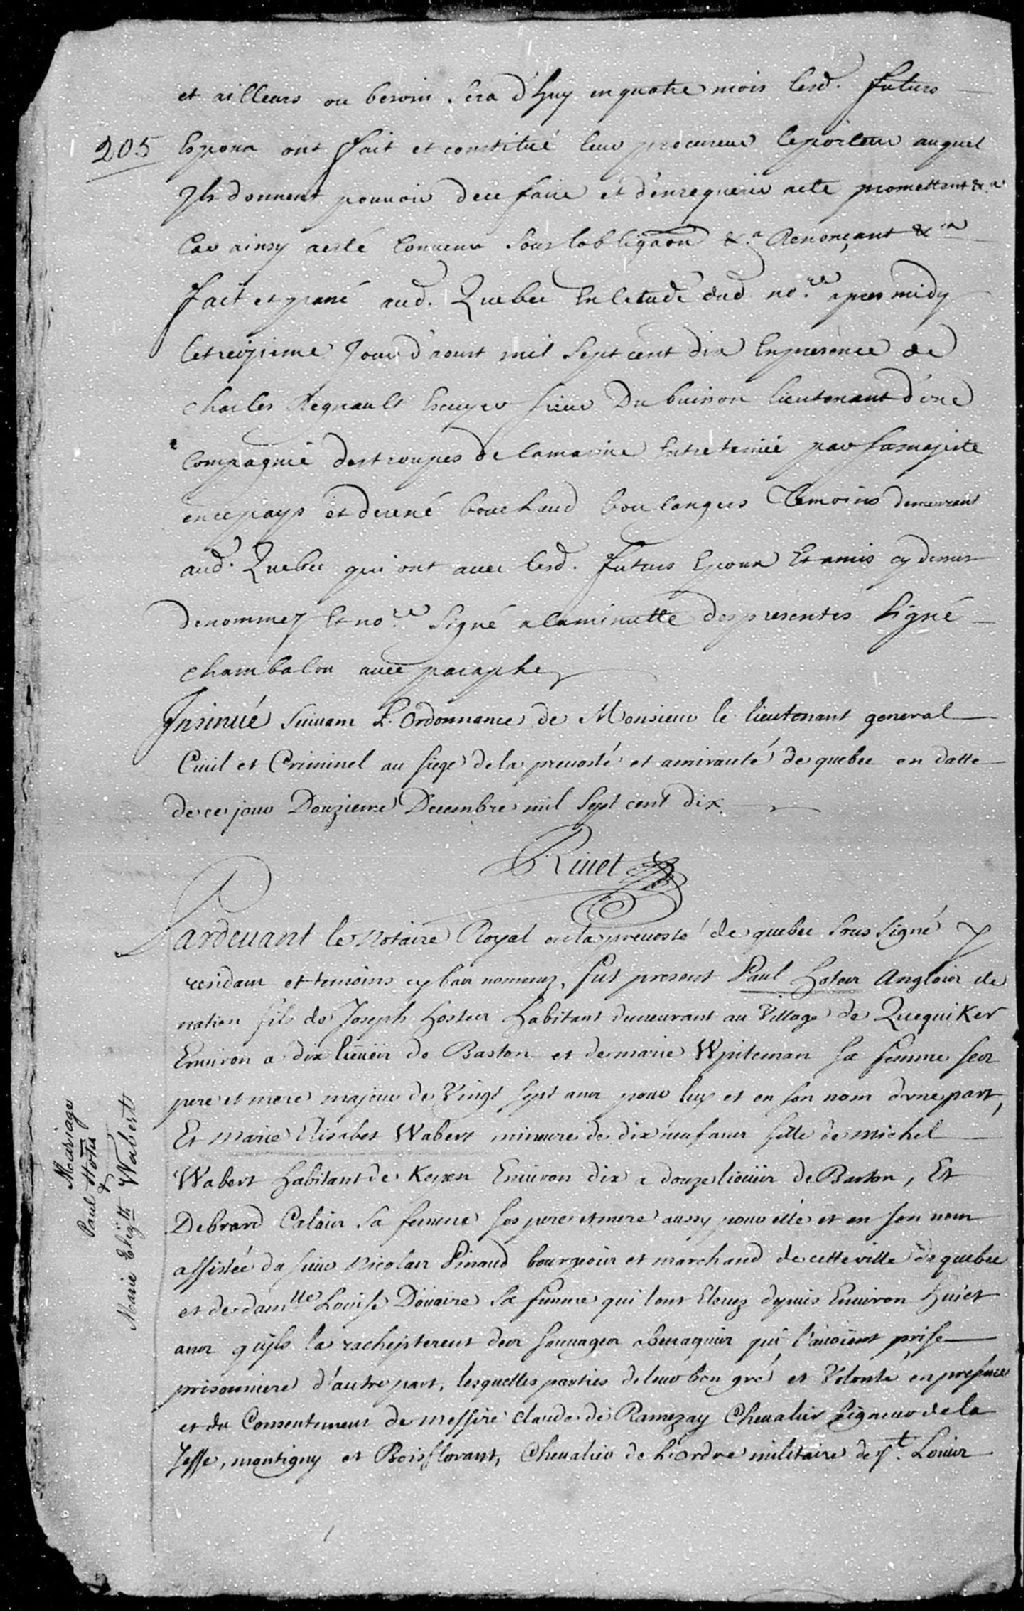 et ailleurs ou besoin Sera d'huy en quatre mois lesd. futurs
205 Espoux ont fait et constitué leur procureur le porteur auquel
Ils donnent pouvoir dece faire et d'enrequerir acte promettant &.a
Car ainsy a esté Convenu Sous lobligaon &.a Renonçant &.a
fait et passé aud. Quebec En letude dud no.re apres midy
letreizieme Jour d'aoust mil Sept cent dix Enpresence de
Charles Regnault Escuyer sieur Dubuisson lieutenant d'une
Compagnie destroupes de lamarine Entretenüe par samajesté
encepays et derené bouchaud boulanger temoins demeurant
aud. Quebec qui ont avec lesd. futurs Epoux Et amis cy dessus
denommez Et no.re Signé alaminutte des presentes Signé
Chambalon avec paraphe
Insinué Suivant L'Ordonnance de Monsieur le lieutenant general
Civil et Criminel au siege dela prevosté et amirauté de quebec en datte
de ce jour Douzieme Decembre mil Sept cent dix.
Rivet
Pardevant le Notaire Royal enla prevosté de quebec Sous Signé y
residant et temoins cy bas nommez, fut present Paul hotesse Anglois de
nation fils de Joseph hosteur habitant demeurant au Village de Quequiker
Environ a dix lieües de Baston et demarie Wpiteman sa femme ses
pere et mere majeur de Vingt Sept ans pour luy et en son nom d'une part,
Et Marie Elisabet Wabert mineure de dix neuf ans fille de Michel
Wabert habitant de Keyxn Environ dix a douze lieües de Baston, Et
Debrard Calais sa femme ses pere et mere aussy pour elle et en son nom
assistée du sieur Nicolas Pinaud bourgeois et marchand de cette ville de quebec
et de dam.lle Louise Douaire sa femme qui lont Elevez depuis Environ huict
ans qu'ils la racheptèrent des sauvages abenaquis qui l'avoient prise
prisonniere d'autre part, lesquelles parties deleur bon gré et Volonté en presence
et du Consentement de messire Claude de Ramezay Chevalier Seigneur de la
Jesse, montigny et Boisflorant, Chevalier de L'ordre militaire de S.t Louis
Mariage
Paul Hotes
&
Marie Eliz.tt Wabert